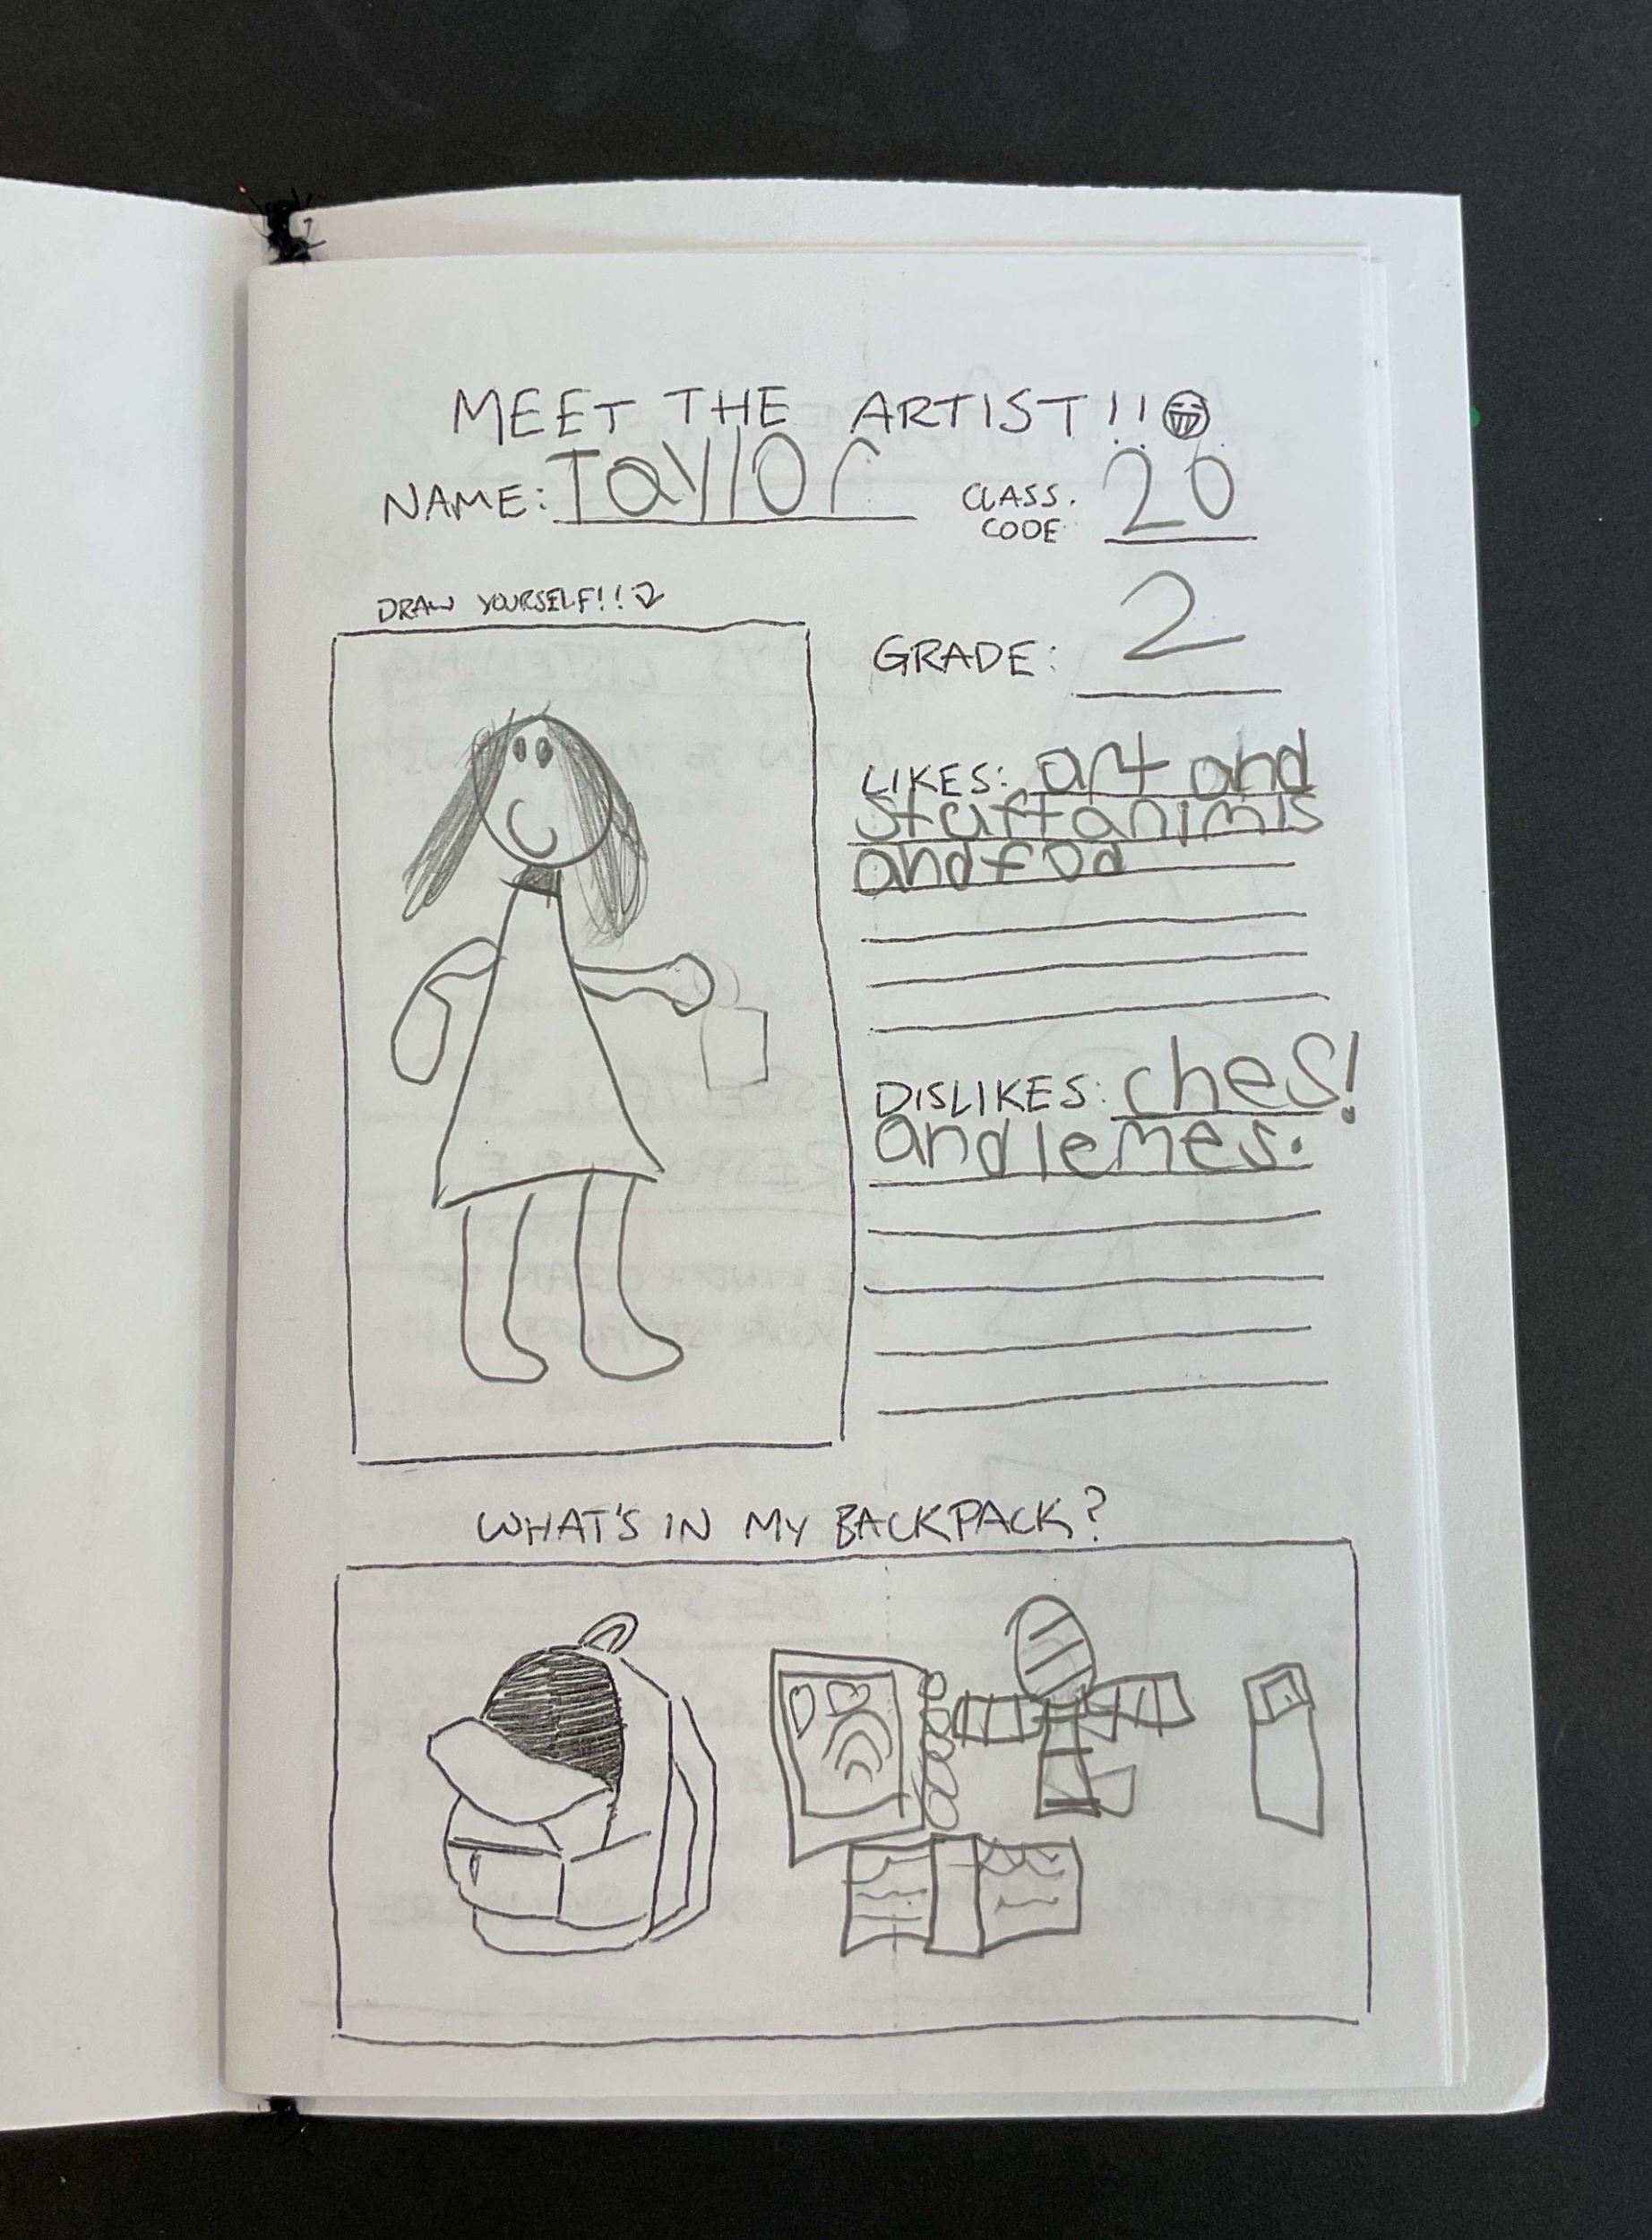 MEET THE ARTIST!!
NAME: Taylor
CLASS. CODE 20
DRAW YOURSELF!!
GRADE: 2
LIKES: art and
stuff animls
and fod
DISLIKES: ches!
and lemes.
WHAT'S IN MY BACKPACK?